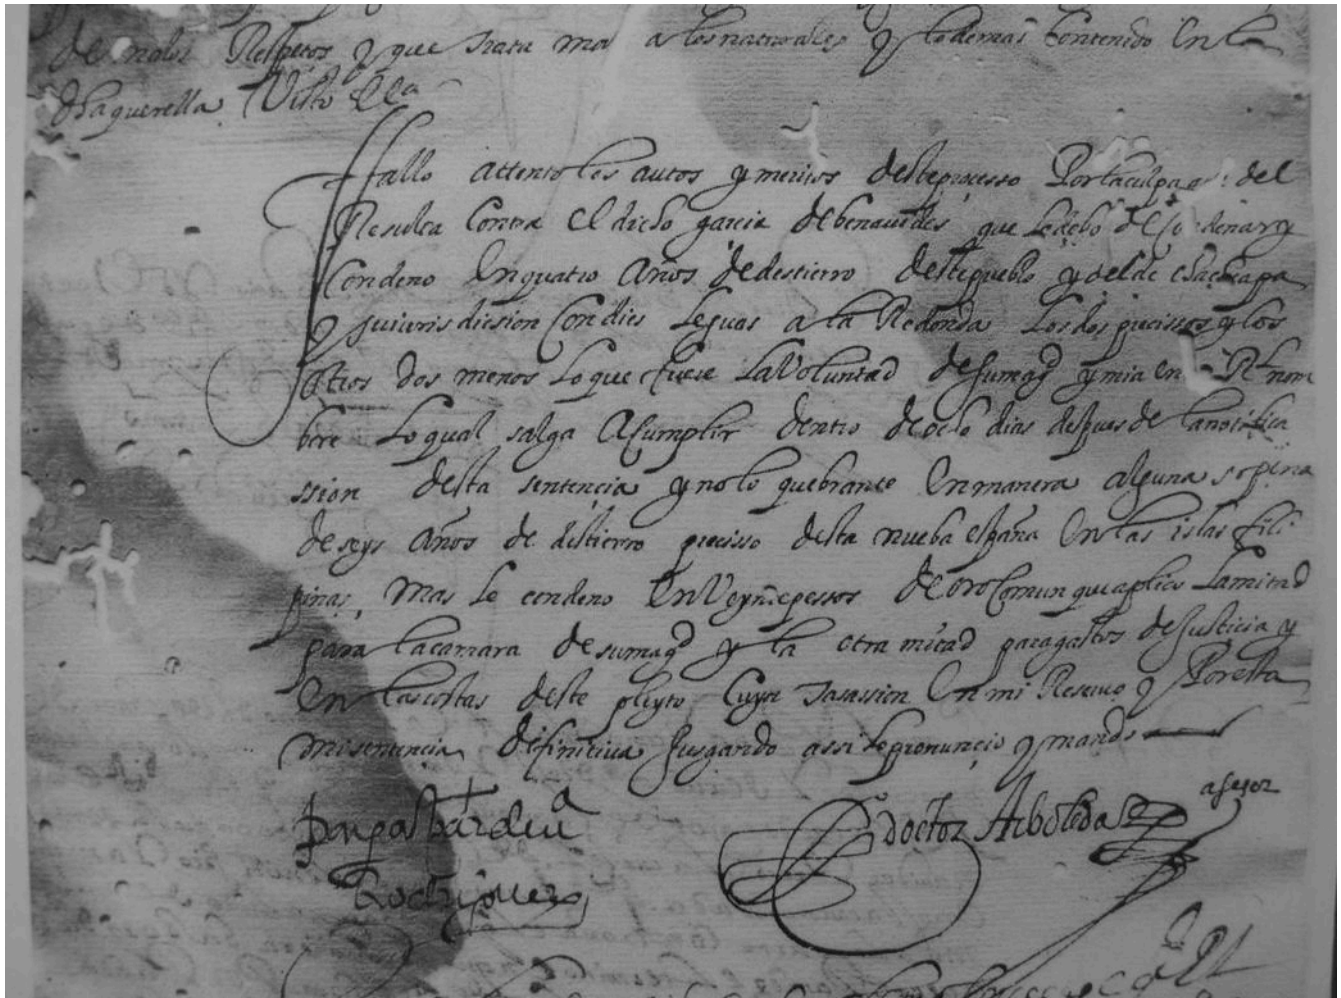 de malos Respetos y que trata mal a los naturales y lo demas contenido En la
dha querella Visto &a
ffallo attento los autos y meritos deste processo Por la culpa q del
Resulta Contra El dicho garcia de benauides que le debo de Condenar y
Condeno En quatro Años de destierro deste pueblo y del de
y su iurisdicsion Con dies leguas a la Redonda Los dos precissos y los
otros dos menos lo que fuere La Voluntad de su magd y mia en su Rl nom
bre Lo qual salga A Cumplir dentro de ocho dias despues de la notifica
ssion desta sentencia y no lo quebrante En manera alguna so pena
de seys Años de distierro precisso desta nueba españa En las islas fili
pinas, Mas le condeno En Veynte pessos de oro Comun que aplico La mitad
para la camara de su magd y la otra mitad para gastos de Justicia y
En las costas deste pleyto Cuya tasassion En mi Reseruo y Por esta
mi sentencia difinitiua Jusgando assi lo pronuncio y mando
doctor Arboleda asesor
Rodriguez